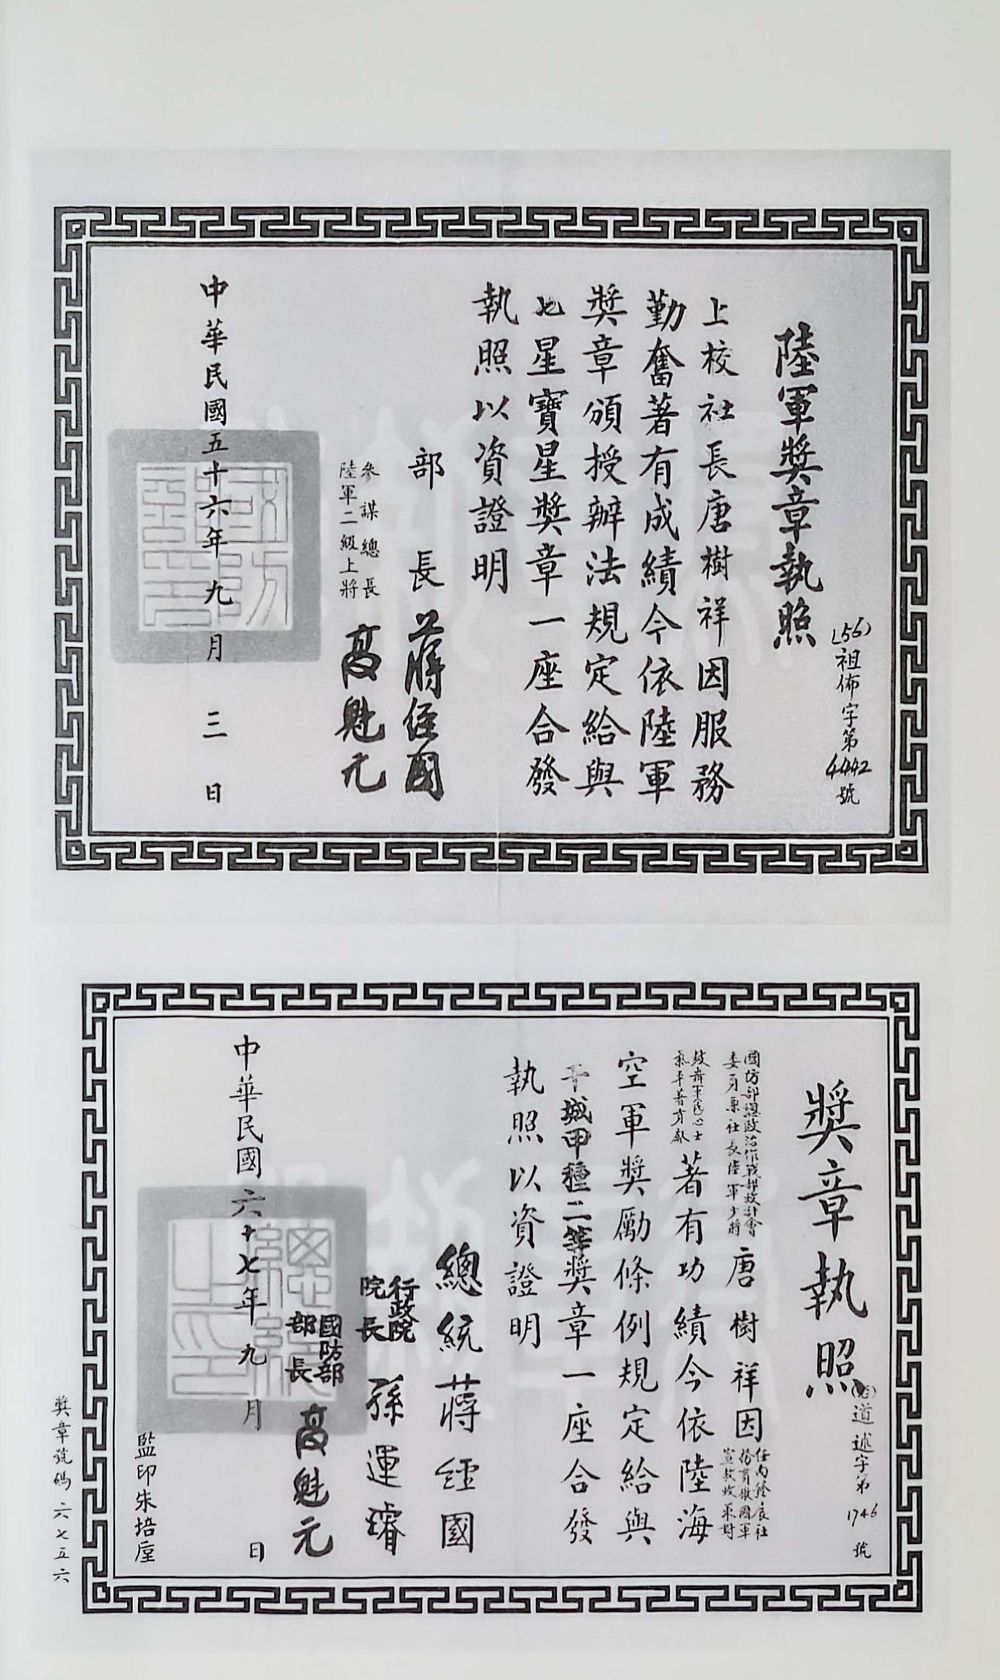 陸軍獎章執照
(56)祖佈字第4442號
上校社長唐樹祥因服務
勤奮著有成績今依陸軍
獎章頒授辦法規定給與
七星寶星獎章一座合發
執照以資證明
部長蔣經國
參謀總長
陸軍二級上將
高魁元
中華民國五十六年九月三日
國防部印
獎章執照
道述字第1746號
國防部總政治作戰部設計會
委員兼社長陸軍少將
唐樹祥因
任內發展社
務有
著有功績今依陸海
空軍獎勵條例規定給與
干城甲種二等獎章一座合發
執照以資證明
總統蔣經國
行政院
院長
孫運璿
國防部
部長
高魁元
中華民國六十七年九月日
總統之印
監印朱培垕
獎章號碼六七五六